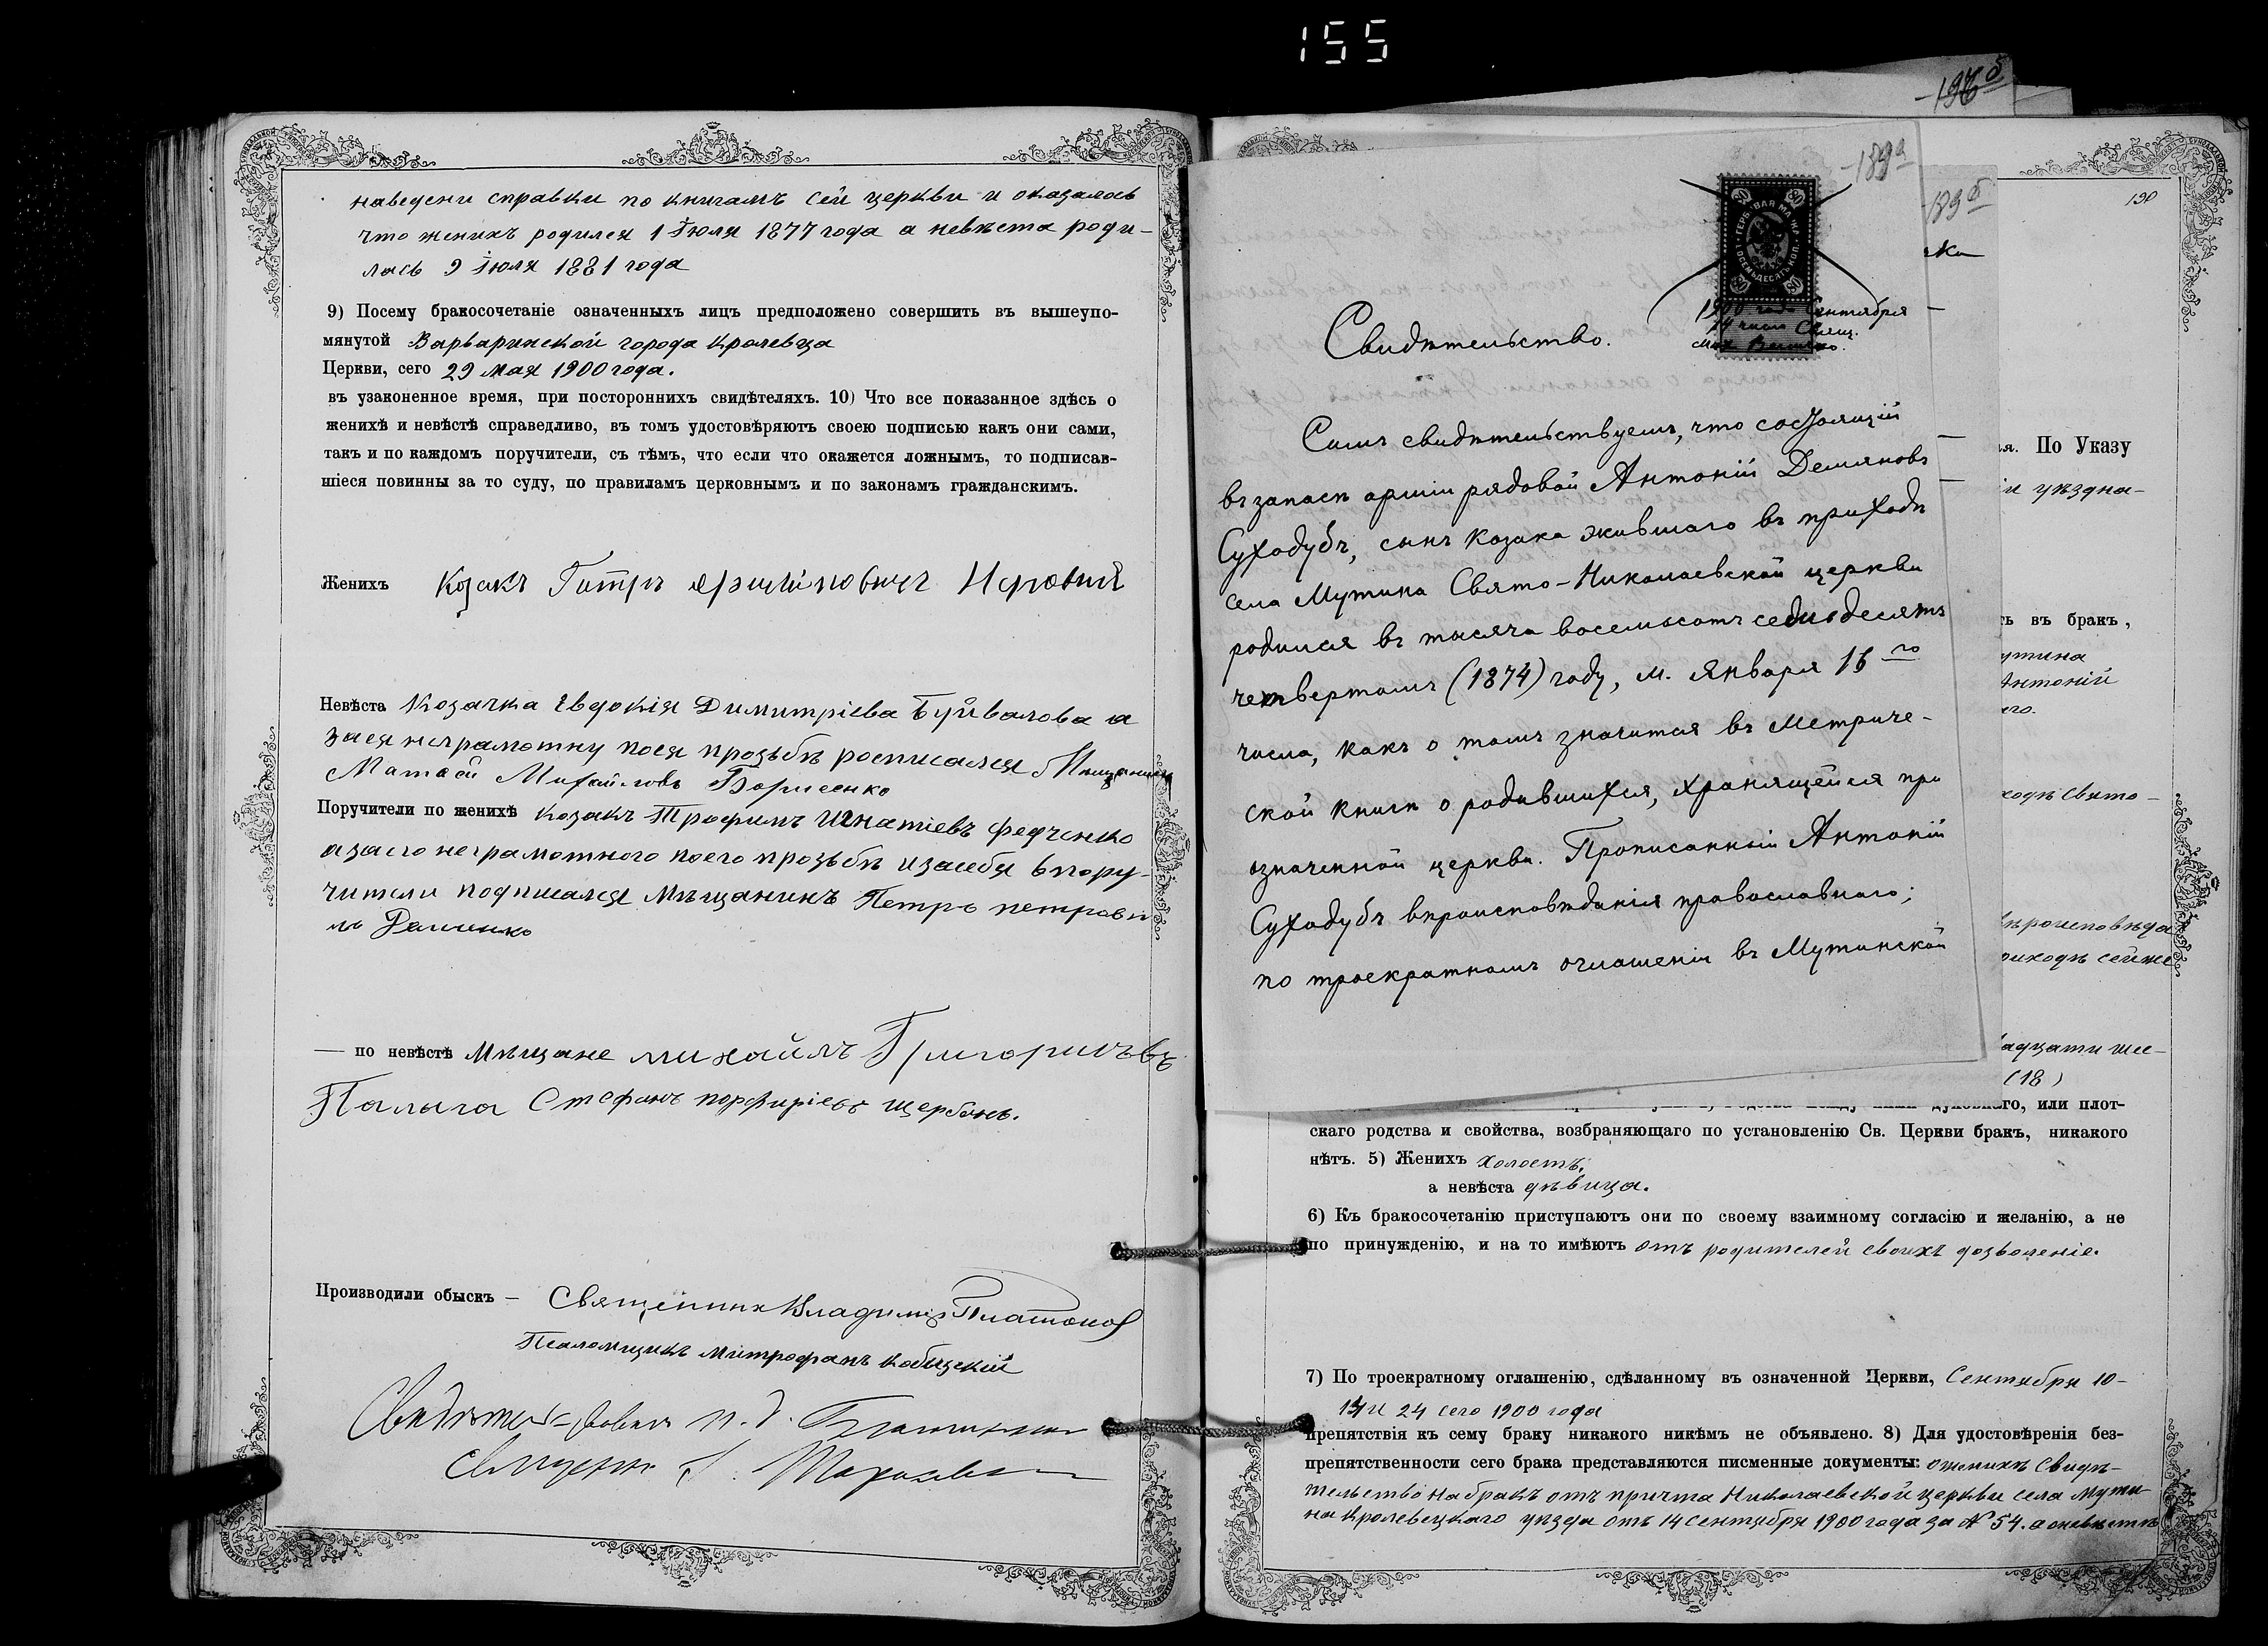 155
наведени справки по книгамъ сей церкви и оказалось
что женихъ родился 1 Іюля 1877 года а невѣста роди-
лась 9 Іюля 1881 года
9) Посему бракосочетаніе означенныхъ лицъ предположено совершить въ вышеупо-
мянутой Варваринской города Кролевца
Церкви, сего 29 мая 1900 года.
въ узаконенное время, при постороннихъ свидѣтеляхъ. 10) Что все показанное здѣсь о
женихѣ и невѣстѣ справедливо, въ томъ удостовѣряютъ своею подписью какъ они сами,
такъ и по каждомъ поручители, съ тѣмъ, что если что окажется ложнымъ, то подписав-
шіеся повинны за то суду, по правиламъ церковнымъ и по законамъ гражданскимъ.
Женихъ Козакъ
Невѣста Козачка Евдокія Димитріева Буйвалова а
за ея неграмотну по ея прозьбѣ росписался
Матвей Михайловъ Борисенко
Поручители по женихѣ козакъ Трофимъ Игнатіевъ Федченко
а за его неграмотного по его прозьбѣ и за себя в пору-
чители подписался Мѣщанинъ Петръ петрови
— по невѣстѣ Мѣщане михайлъ Григориевъ
Палыга Стефанъ порфиріевъ щербакъ.
Производили обыскъ — Священникъ Владиміръ Платонов
Псаломщикъ Митрофанъ
-189а
Свидѣтельство.
ГЕРБОВАЯ МАРКА
ВОСЕМЬДЕСЯТЪ КОП.
80
1900 года Сентября
14 числа Свящ.
Симъ свидѣтельствуемъ, что состоящій
въ запасѣ арміи рядовой Антоній Демяновъ
Суходубъ, сынъ козака жившаго въ приходѣ
села Мутина Свято-Николаевской церкви
родился въ тысяча восемьсотъ семьдесятъ
четвертомъ (1874) году, м. Января 16го
числа, какъ о томъ значится въ Метриче-
ской книгѣ о родившихся, хранящейся при
означенной церкви. Прописанный Антоній
Суходубъ вѣроисповѣданія православнаго;
по троекратномъ оглашеніи въ Мутинской
189б
190
ія. По Указу
уѣздна-
ть въ бракъ,
утина
Антоній
его.
ходѣ Свято-
вѣроисповѣда
риходѣ сей же
адцати шес-
(18)
духовнаго, или плот-
скаго родства и свойства, возбраняющаго по установленію Св. Церкви бракъ, никакого
нѣтъ. 5) Женихъ холостъ,
а невѣста дѣвица.
6) Къ бракосочетанію приступаютъ они по своему взаимному согласію и желанію, а не
по принужденію, и на то имѣютъ отъ родителей своихъ дозволеніе.
7) По троекратному оглашенію, сдѣланному въ означенной Церкви, Сентября 10-
14 и 24 сего 1900 года
препятствія къ сему браку никакого никѣмъ не объявлено. 8) Для удостовѣренія без-
препятственности сего брака представляются писменные документы: о женихѣ Свидѣ-
тельство на бракъ отъ причта Николаевской церкви села Мути-
на Кролевецкаго уѣзда отъ 14 Сентября 1900 года за № 54. а о невѣстѣ